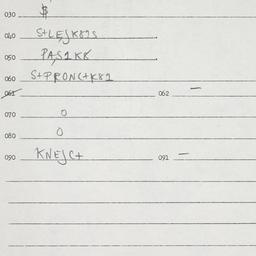 030 $
040 S+LEJK82S
050 PAS1K8
060 S+PRONC+K82
061 062 —
070 0
080 0
090 KNEJC+ 091 —